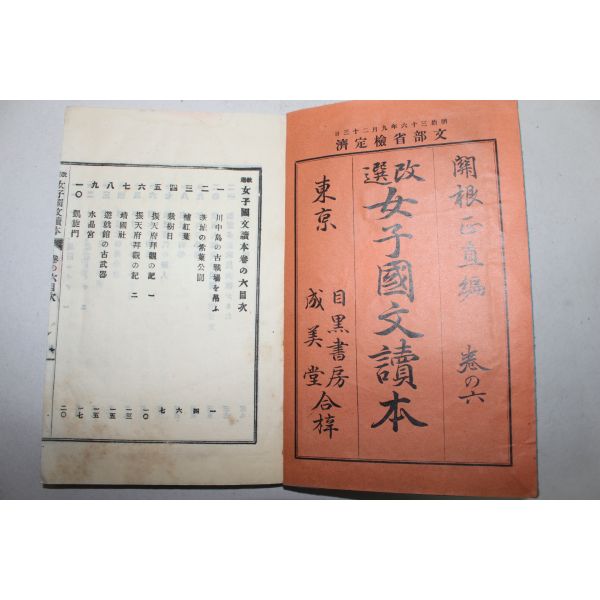 明治三十六年九月二十三日
文部省檢定濟
關根正直編 卷の六
改選 女子國文讀本
東京 目黑書房 成美堂 合梓
改選 女子國文讀本卷の六目次
一 川中島の古戰場を弔ふ 一
二 の紫葉公園 四
三 植紅葉 六
四 栽樹日 七
五 振天府拜觀の記 一 七
六 振天府拜觀の記 二 一〇
七 靖國社 一三
八 遊就館の古武器 一五
九 水晶宮 一五
一〇 凱旋門 一七
二〇
改選 女子國文讀本 卷の六目次